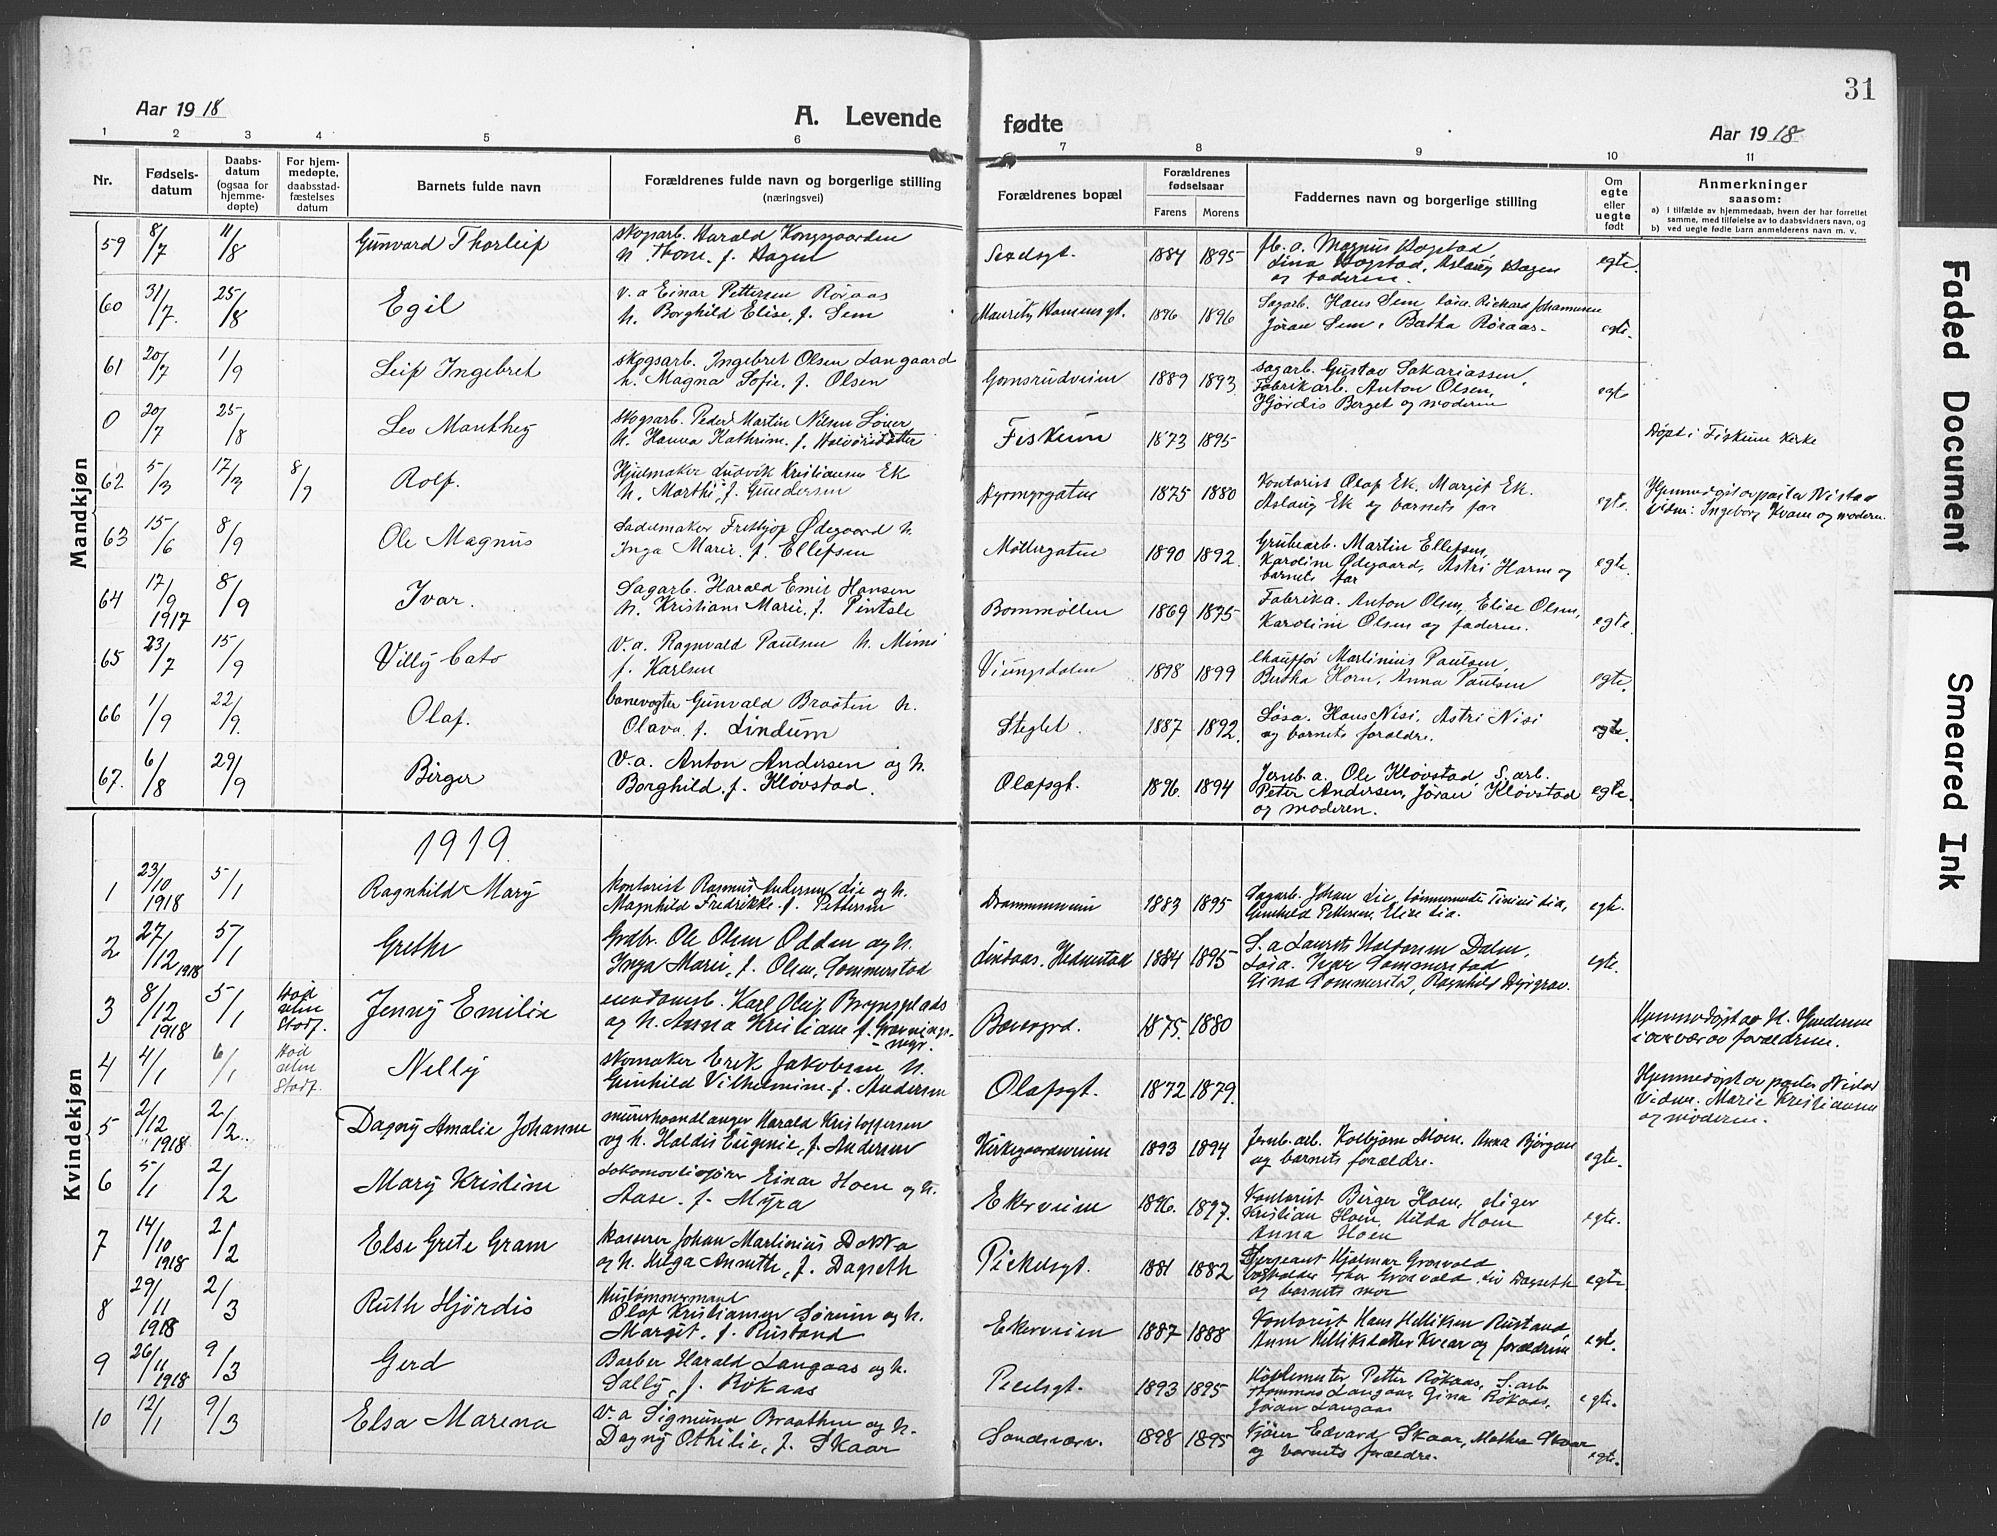 31
Aar 1918
A. Levende fødte
Aar 1918
1 2 3 4 5 6 7 8 9 10 11
Nr.
Fødsels-
datum
Daabs-
datum
(ogsaa for
hjemme-
døpte)
For hjem-
medøpte,
daabsstad-
fæstelses
datum
Barnets fulde navn
Forældrenes fulde navn og borgerlige stilling
(næringsvei)
Forældrenes bopæl
Forældrenes
fødselsaar
Farens Morens
Faddernes navn og borgerlige stilling
Om
egte
eller
uegte
født
Anmerkninger
saasom:
a) i tilfælde av hjemmedaab, hvem der har forrettet
samme, med tilføielse av to daabsvidners navn, og
b) ved uegte fødte barn anmelderens navn m. v.
Mandkjøn
59 8/7 11/8 Gunvard Thorleif
skogsarb. Harald Kongsgaarden
h. Thone f. Hagen
1884 1895
fb. a. Magnus Hogstad
Lina Hogstad, Aslaug Hagen
og faderen.
egte.
60 31/7. 25/8 Egil
v. a Einar Pettersen Røraas
h. Borghild Elise, f. Sem
Maurits Hansensgt. 1896 1896
Sagarb. Hans Sem, Richard Johannesen
Jøran Sem, Røraas.
egte.
61 20/7 1/9 Leif Ingebret
skogsarb. Ingebret Olsen Langaard
h. Magna Sofie, f. Olsen
Gomsrudveien 1889 1893
sagarb. Gustav Sakariassen,
Fabrikarb. Anton Olsen,
Hjørdis Berget og moderen
egte
0 20/7 25/8 Leo Manthey
skogsarb. Peder Martin Nilsen
h. Hanna Kathrine f. Halvorsdatter
Fiskum 1873 1895
Døpt i Fiskum kirke
62 5/3 17/3 8/9 Rolf.
Hjulmaker Ludvik Kristiansen Ek
h. Marthe, f. Gundersen
Dyrmyrgaten 1875 1880
Kontorist Olaf Ek. Margit Ek.
Aslaug Ek og barnets far
egte.
Hjemmedøpt av pastor Nistad
vidn: Ingeborg Kvam og moderen.
63 15/6 8/9 Ole Magnus
Sadelmaker Fritjof Ødegaard h.
Inga Marie, f. Ellefsen
Møllergaten 1890 1892
Grubearb. Martin Ellefsen,
Karoline Ødegaard, Astri Harm og
barnets far
egte.
64 17/9 1917 8/9 Ivar.
Sagarb. Harald Emil Hansen
h. Kristiane Marie, f. Pintsle
Bommøllen 1869 1875
Fabrika. Anton Olsen, Elise Olsen,
Karoline Olsen og faderen.
egte.
65 23/7 15/9 Villy Cato
V. a. Ragnvald Paulsen h. Mimi
f. Karlsen
Viungsdalen 1898 1899
Chauffør Martinius Paulsen,
Bertha Horn, Anna Paulsen
egte.
66 1/9 22/9. Olaf.
banevogter Gunvald Braaten h.
Olava f. Lindum
Steglet. 1887 1892.
Løsa. Hans Nisi, Astri Nisi
og barnets forældre.
egte.
67. 6/8 29/9 Birger
V. a. Anton Andersen og h.
Borghild. f. Kløvstad.
Olafsgt. 1896. 1894
Jernb. a. Ole Kløvstad, S. arb.
Peter Andersen, Jøran Kløvstad
og moderen.
egte.
1919.
Kvindekjøn
1 23/10 1918 5/1 Ragnhild Mary
kontorist Rasmus Andersen Lie og h.
Magnhild Fredrikke f. Pettersen
Drammensveien 1883 1895
Sagarb. Johan Lie, tømmermester Tinius Lia,
Gunhild Pettersen, Elise Lia.
egte.
2 27/12 1918 5/1 Grethe
Grdbr. Ole Olsen Odden og h.
Inga Marie, f. Olsen, Sommerstad
Lindaas. Hedenstad 1884 1895
S. a Laurits Halvorsen Dalen,
Løsa. Ivar Sommerstad
Gina Sommerstad, Ragnhild Dyrgrav.
egte.
3 8/12 1918 5/1
Jenny Emilie
eiendomsb. Karl Olaf Bryggeplads
og h. Anna Kristiane f.
Bævergrd. 1875. 1880
Hjemmedøpt av H. Gudersen
i overvær av forældrene.
4 4/1 6/1
Nelly
skomaker Erik Jakobsen h.
Gunhild Vilhelmine f. Andersen
Olafsgt. 1872 1879.
Hjemmedøpt av pastor Nistad
Vidner: Marie Kristiansen
og moderen.
5 2/12 1918 2/2 Dagny Amalie Johanne
murerhaandlanger Harald Kristoffersen
og h. Haldis Eugenie, f. Andersen
Kirkegaardsveien 1893 1894
Jernb. arb. Kolbjørn Moen, Anna Bjørgan
og barnets forældre.
egte.
6 5/1 2/2 Mary Kristine
Lokomotivfører Einar Hoen og h.
Aase. f. Myra
Ekerveien 1896. 1897.
Kontorist Birger Hoen, eliger
Kristian Hoen, Hilda Hoen
Anna Hoen
egte.
7 14/10 1918 2/2 Else Grete Gram
kasserer Johan Martinius Dokka
og h. Helga Annette, f. Dagseth
Pickelsgt. 1881 1882
Sergeant Hjalmar Grosvold
Thor Grosvold, Liv Dagseth
og barnets mor
egte.
8 29/11 1918 2/3 Ruth Hjørdis
Hustømmermand
Olaf Kristiansen Sørum og h.
Margit. f. Rustand
Ekerveien 1887 1888
Kontorist Hans Helliksen Rustand,
Anne Helliksdatter Kvear og forældrene
egte.
9 26/11 1918 9/3 Gerd
Barber Harald Langaas og h.
Sally, f. Røkaas
Peckelsgt. 1893 1895
Petter Røkaas, S. arb
Thommas Langaas, Gina Røkaas,
Jøran Langaas
egte.
10 12/1 9/3 Elsa Marena
V. a Sigmund Braathen og h.
Dagny Othilie, f. Skaar
Sandsværv. 1898 1895
Kjører Edvard Skaar, Mathea Skaar
og barnets forældre.
egte.
Faded Document
Smeared Ink